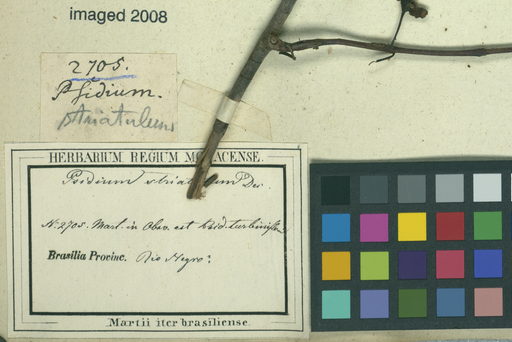 imaged 2008
2705.
Psidium.
striatulum
HERBARIUM REGIUM MONACENSE.
Psidium striatulum Dec.
N. 2705. Mart. in Obs. est Psid. turbinifl
Brasilia Provinc. Rio Negro.
Martii iter brasiliense.